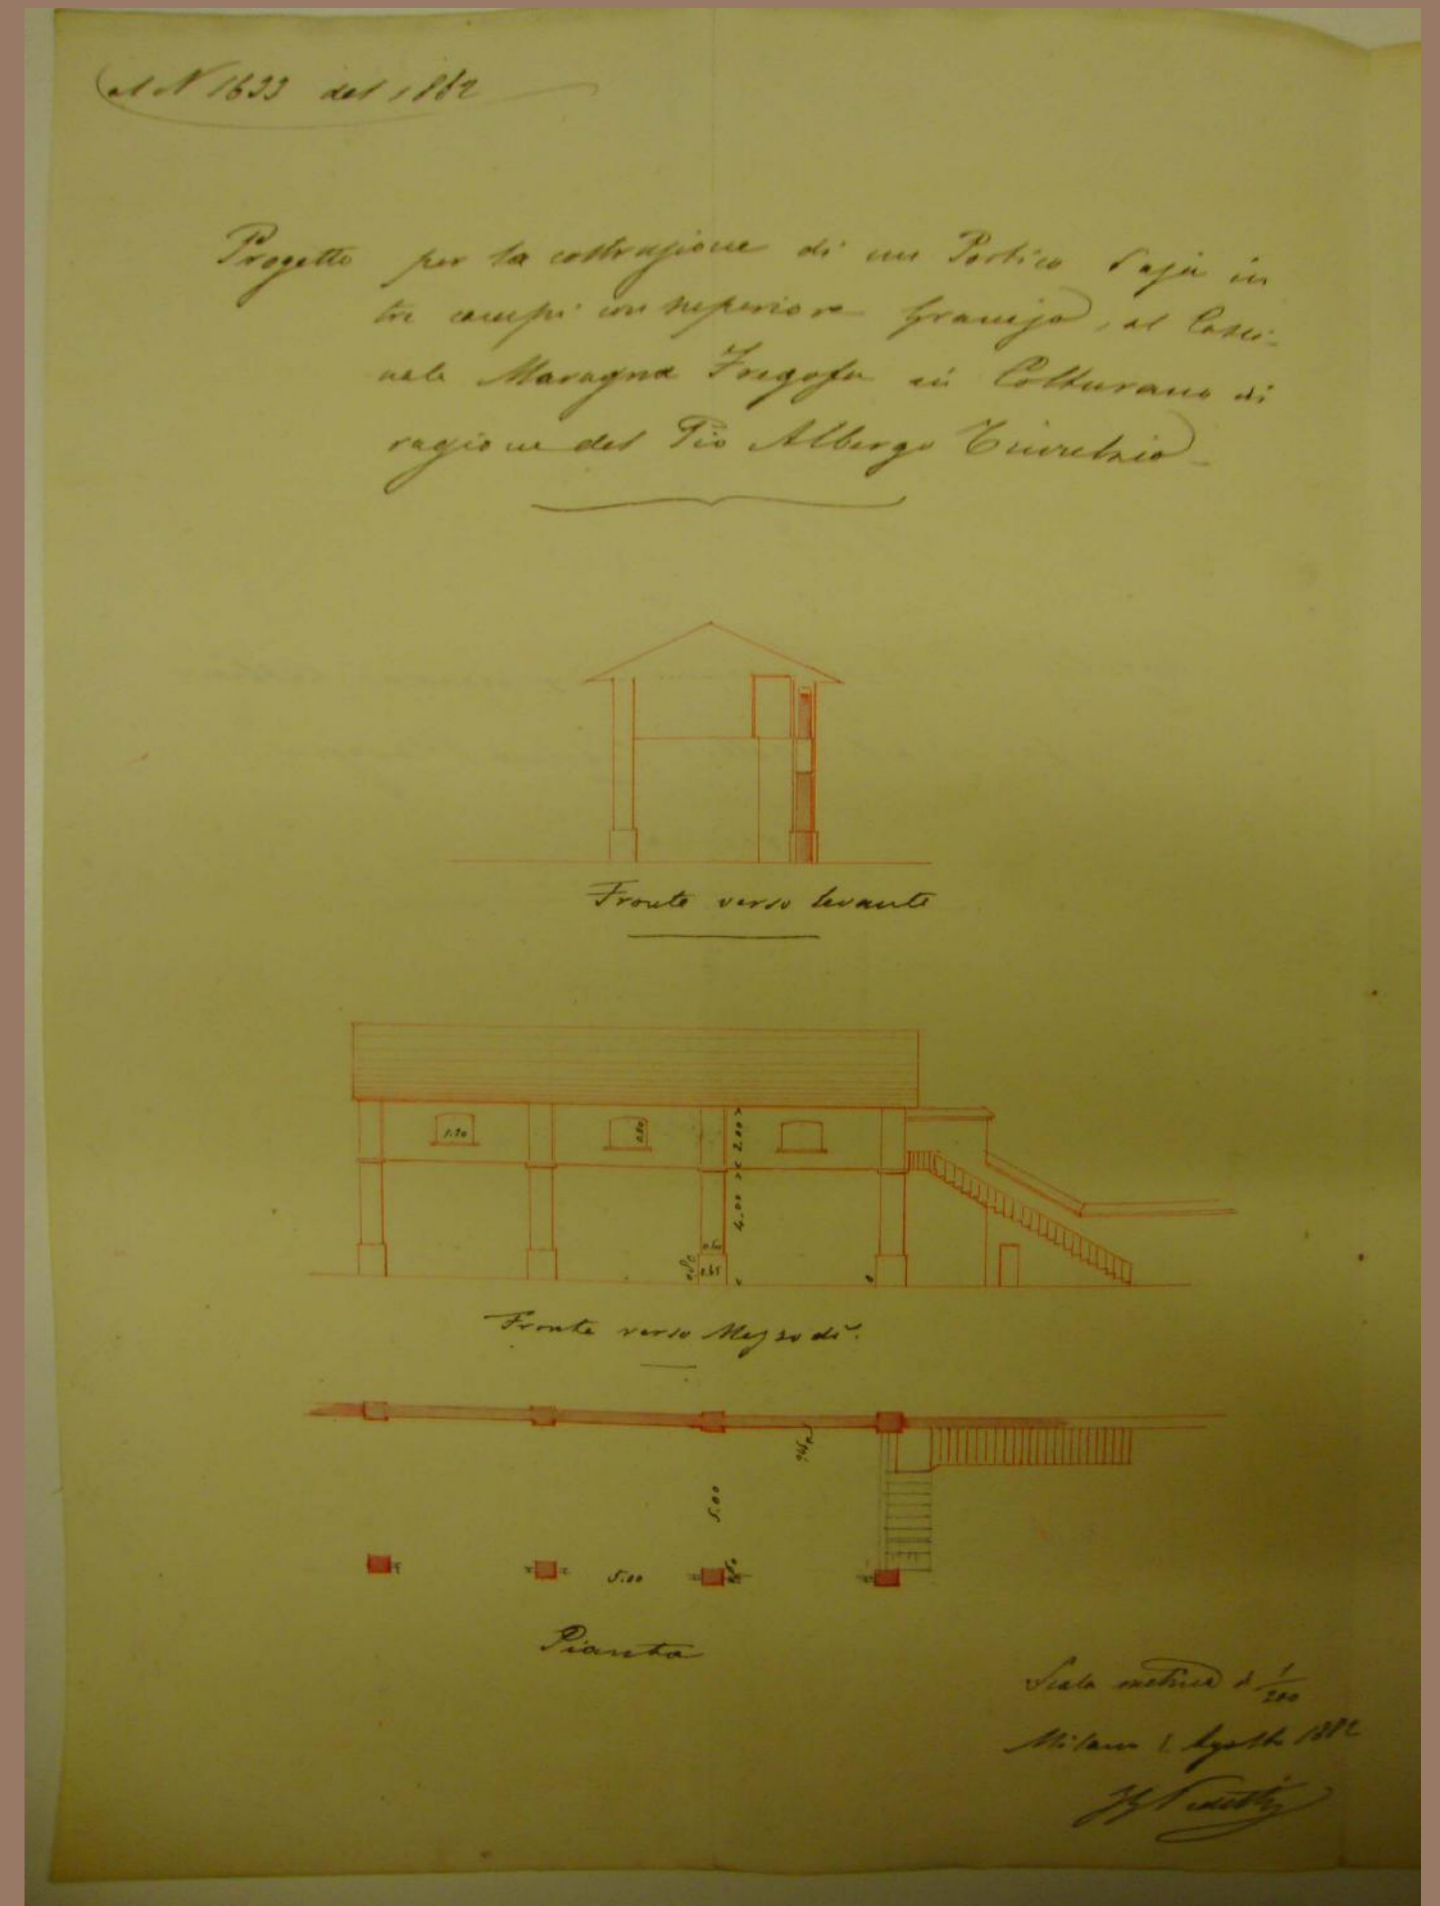 al N 1633 del 1882
Progetto per la costruzione di un Portico in
tre campi con superiore Granajo, al Casci-
nale Maragna Fregosa in Colturano di
ragione del Pio Albergo Trivulzio
Fronte verso levante
1.20 0.80 2.80
4.00
0.80 0.60
0.65
Fronte verso Mezzodì.
5.00
5.00
Pianta
Scala metrica di 1/200
Milano 1 Agosto 1882